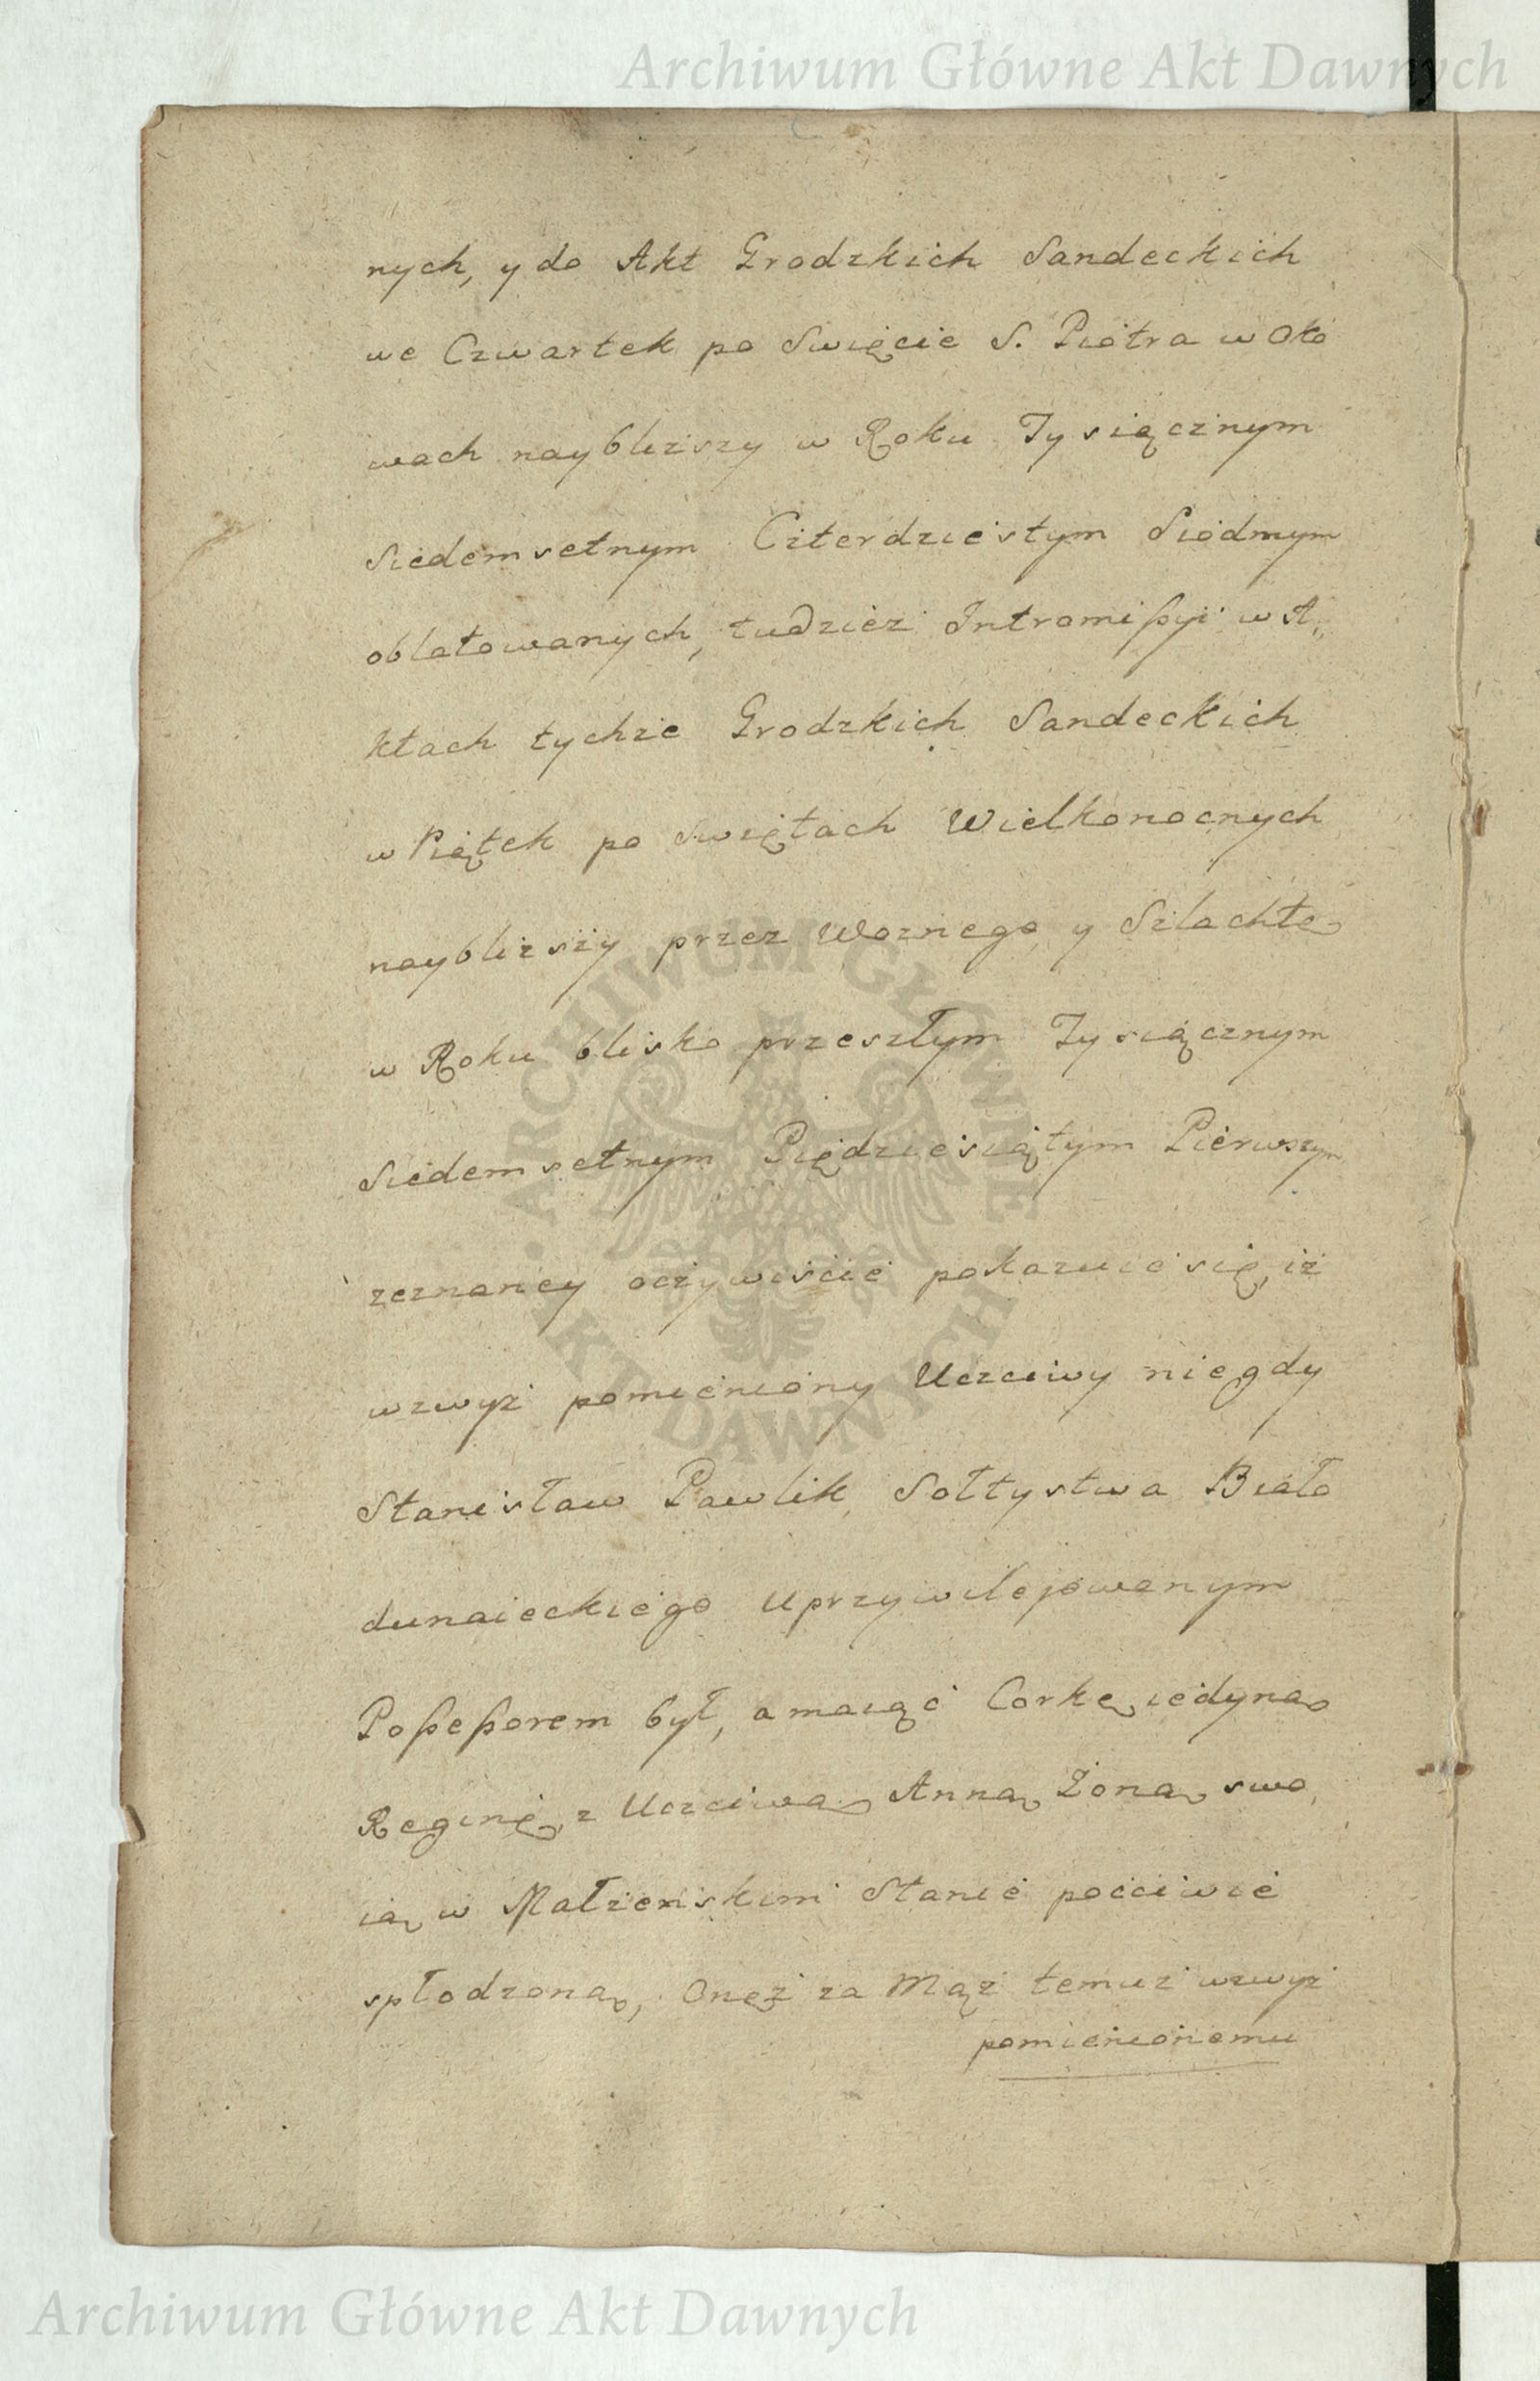 Archiwum Główne Akt Dawnych
nych, y do Akt Grodzkich Sandeckich
we Czwartek po Swięcie S. Piotra w Oko
wach naybliższy w Roku Tysiącznym
Siedemsetnym Czterdziestym Siodmym
oblatowanych, tudzież Intromißyi w A„
ktach tychże Grodzkich Sandeckich
w Piątek po Swiętach Wielkonocnych
naybliższy przez Woznego y Szlachtę
w Roku blisko przeszłym Tysiącznym
Siedemsetnym Piędziesiątym Pierwszym
zeznaney oczywiście pokazuie się, iż
wzwyż pomieniony Uczciwy niegdy
Stanisław Pawlik Sołtystwa Biało
dunaieckiego uprzywilejowanym
Poßeßorem był, a maiąc Corkę iedyną
Reginę z Uczciwą Anną Żoną swo
ią w Małżeńskim Stanie poćciwie
spłodzoną, Onęż za Mąż temuż wzwyż
pomienionemu
ARCHIWUM GŁÓWNE • AKT DAWNYCH •
Archiwum Główne Akt Dawnych